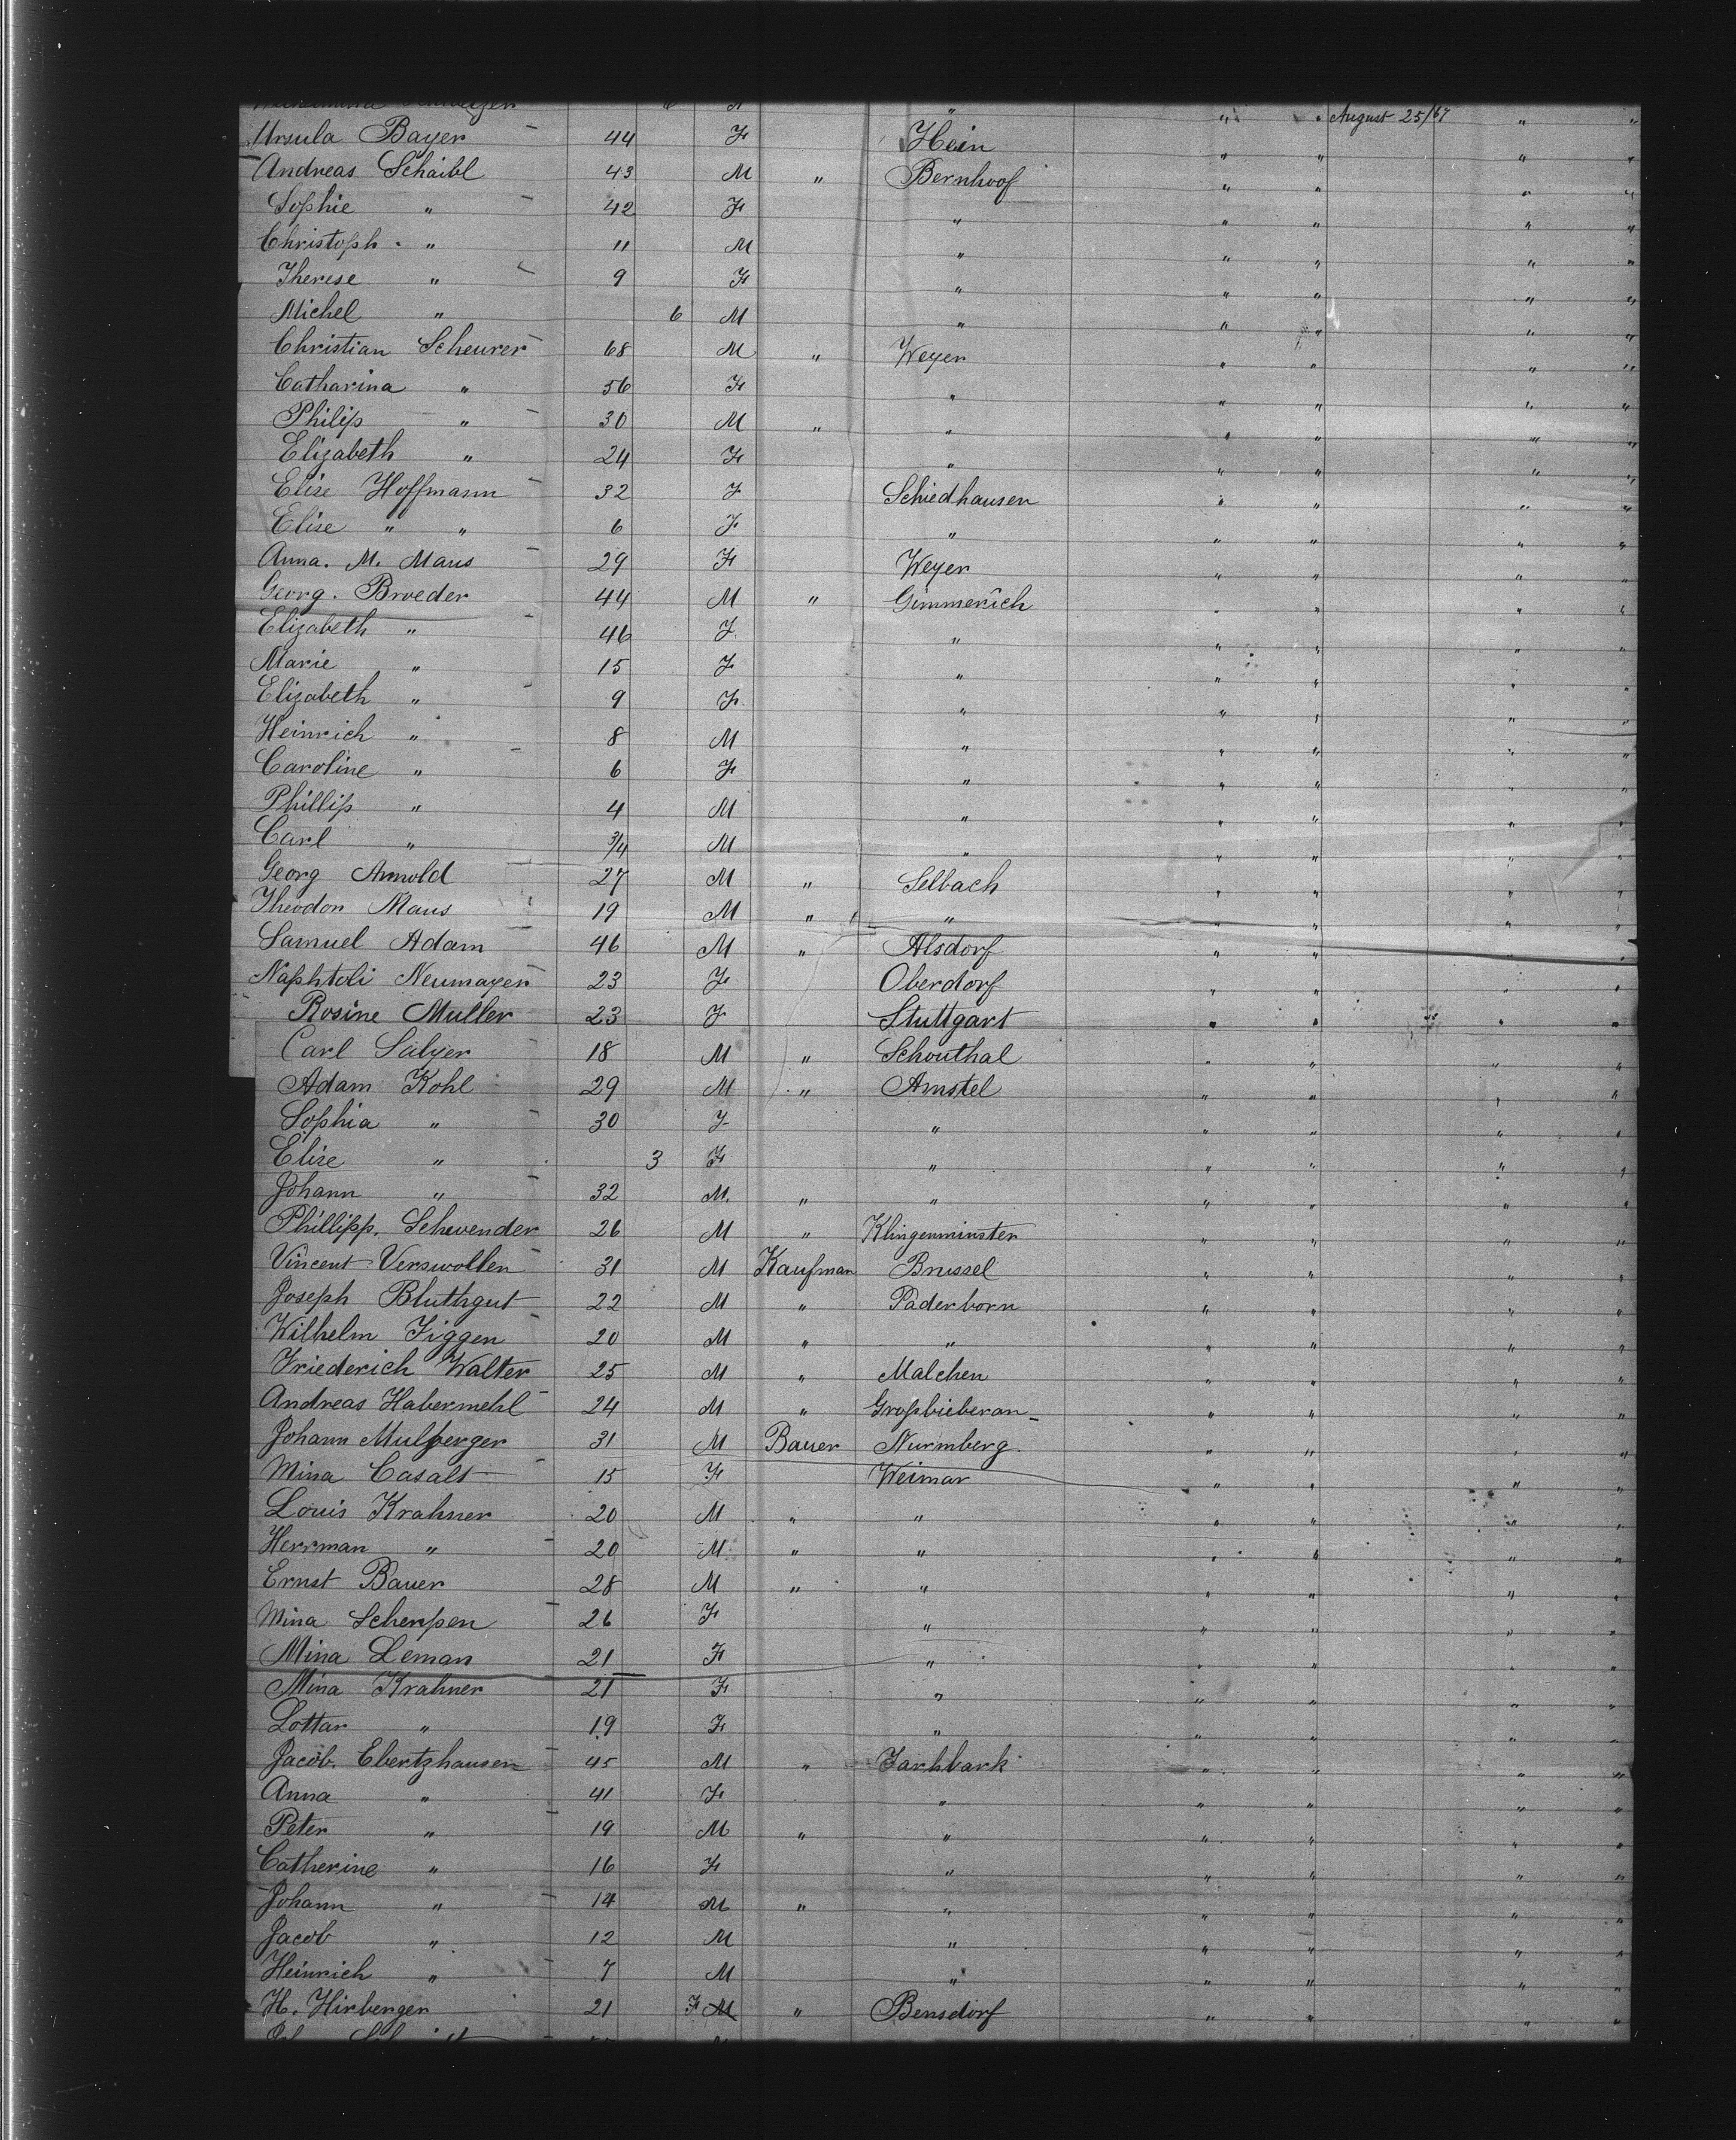 " " " August 25/67 " "
Ursula Bayer 44 F Hein " " " "
Andreas Schaibl 43 M " Bernhoof " " " "
Sophie " 42 F " " " " "
Christoph " 11 M " " " " "
Therese " 9 F " " " " "
Michel " 6 M " " " " "
Christian Scheurer 68 M " Weyer " " " "
Catharina " 56 F " " " " "
Philip " 30 M " " " " " "
Elizabeth " 24 F " " " " "
Elise Hoffmann 32 F Schiedhausen " " " "
Elise " " 6 F " " " " "
Anna. M. Maus 29 F Weyer " " " "
Georg. Broeder 44 M " Gimmerich " " " "
Elizabeth " 46 F " " " " "
Marie " 15 F " " " " "
Elizabeth " 9 F " " " " "
Heinrich " 8 M " " " " "
Caroline " 6 F " " " " "
Phillip " 4 M " " " " "
Carl " 3/4 M " " " " "
Georg Arnold 27 M " Selbach " " " "
Theodor Maus 19 M " " " " " "
Samuel Adam 46 M " Alsdorf " " " "
Naphtoli Neumayer 23 F Oberdorf " " " "
Rosine Muller 23 F Stuttgart " " " "
Carl Salyer 18 M " Schouthal " " " "
Adam Kohl 29 M " Amstel " " " "
Sophia " 30 F " " " " "
Elise " 3 F " " " " "
Johann " 32 M. " " " " " "
Phillipp. Schwender 26 M " Klingenminster " " " "
Vincent Verswollen 31 M Kaufman Brussel " " " "
Joseph Bluthgut 22 M " Paderborn " " " "
Wilhelm Figgen 20 M " " " " " "
Friederich Walter 25 M " Malchen " " " "
Andreas Habermehl 24 M " Großbieberan " " " "
Johann Mulberger 31 M Bauer Nurmberg. " " " "
Mina Casalt 15 F Weimar " " " "
Louis Krahner 20 M " " " " " "
Herrman " 20 M " " " " " "
Ernst Bauer 28 M " " " " " "
Mina Scherpen 26 F " " " " "
Mina Leman 21 F " " " " "
Mina Krahner 21 F " " " " "
Lottar " 19 F " " " " "
Jacob. Ebertzhausen 45 M " Farhbark " " " "
Anna " 41 F " " " " "
Peter " 19 M " " " " " "
Catherine " 16 F " " " " "
Johann " 14 M " " " " " "
Jacob " 12 M " " " " "
Heinrich " 7 M " " " " "
H. Hirberger 21 F M " Bensdorf " " " "